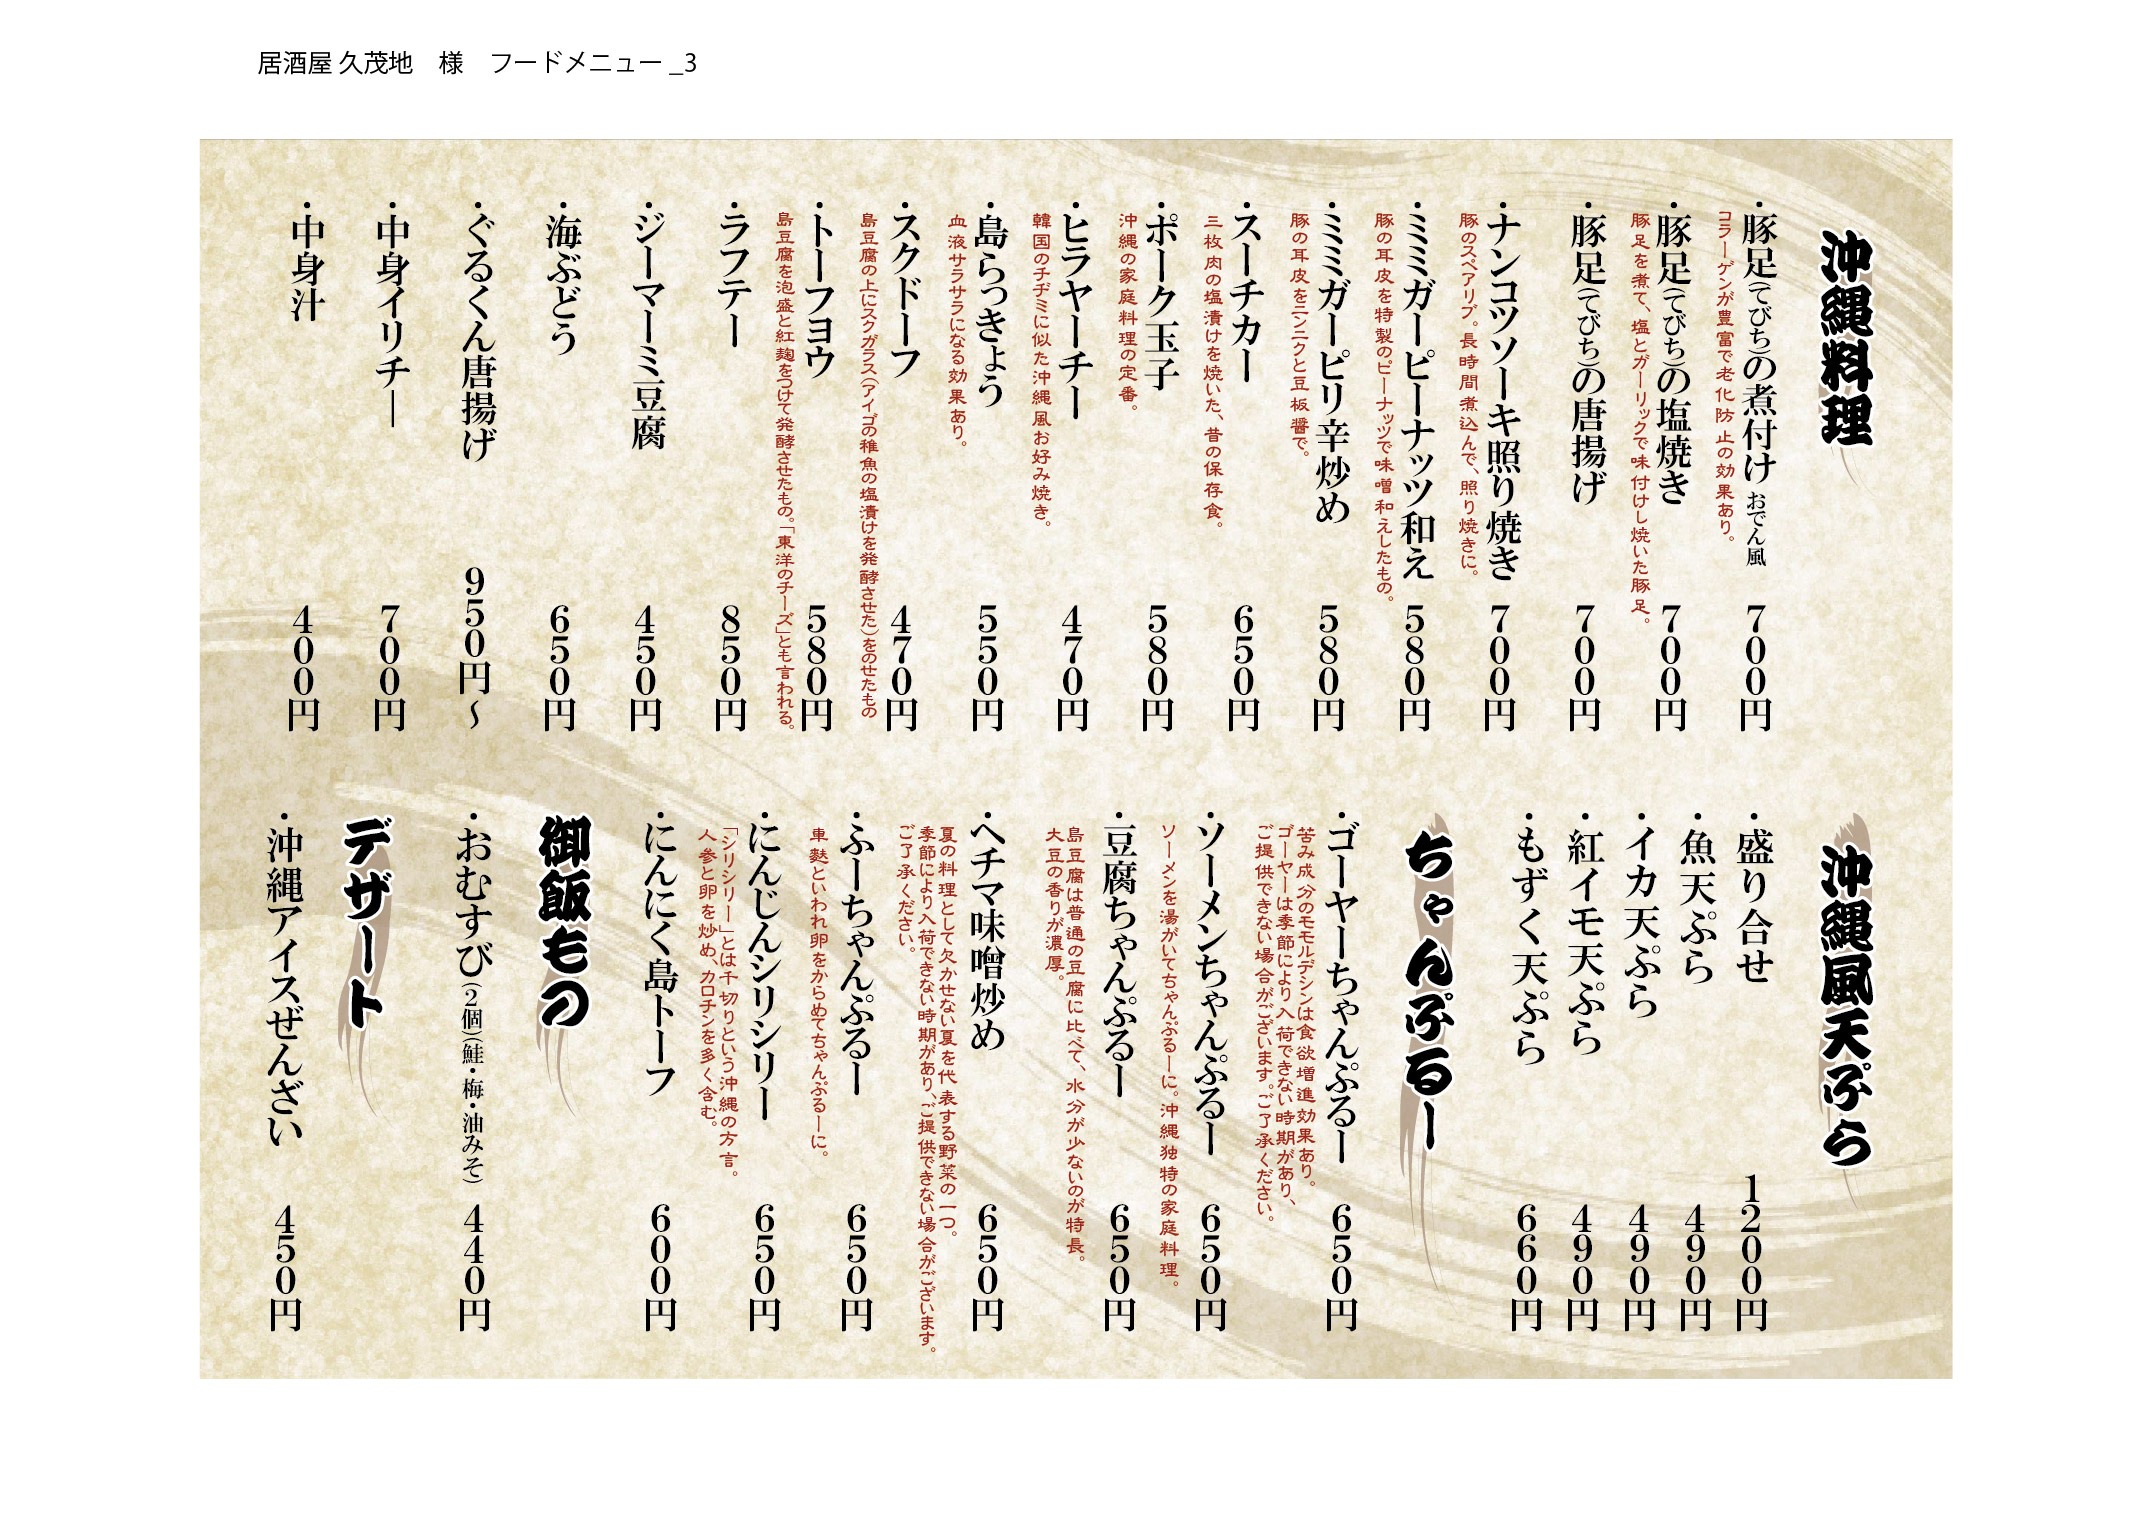 居酒屋 久茂地　様　フードメニュー _3
沖縄料理
・豚足(てびち)の煮付け おでん風 700円
コラーゲンが豊富で老化防止の効果あり。
・豚足(てびち)の塩焼き 700円
豚足を煮て、塩とガーリックで味付けし焼いた豚足。
・豚足(てびち)の唐揚げ 700円
・ナンコツソーキ照り焼き 700円
豚のスペアリブ。長時間煮込んで、照り焼きに。
・ミミガーピーナッツ和え 580円
豚の耳皮を特製のピーナッツで味噌和えしたもの。
・ミミガーピリ辛炒め 580円
豚の耳皮をニンニクと豆板醤で。
・スーチカー 650円
三枚肉の塩漬けを焼いた、昔の保存食。
・ポーク玉子 580円
沖縄の家庭料理の定番。
・ヒラヤーチー 470円
韓国のチヂミに似た沖縄風お好み焼き。
・島らっきょう 550円
血液サラサラになる効果あり。
・スクドーフ 470円
島豆腐の上にスクガラス(アイゴの稚魚の塩漬けを発酵させた)をのせたもの
・トーフヨウ 580円
島豆腐を泡盛と紅麹をつけて発酵させたもの。「東洋のチーズ」とも言われる。
・ラフテー 850円
・ジーマーミ豆腐 450円
・海ぶどう 650円
・ぐるくん唐揚げ 950円～
・中身イリチー 700円
・中身汁 400円
沖縄風天ぷら
・盛り合せ 1200円
・魚天ぷら 490円
・イカ天ぷら 490円
・紅イモ天ぷら 490円
・もずく天ぷら 660円
ちゃんぷるー
・ゴーヤーちゃんぷるー 650円
苦み成分のモモルデシンは食欲増進効果あり。
ゴーヤーは季節により入荷できない時期があり、
ご提供できない場合がございます。ご了承ください。
・ソーメンちゃんぷるー 650円
ソーメンを湯がいてちゃんぷるーに。沖縄独特の家庭料理。
・豆腐ちゃんぷるー 650円
島豆腐は普通の豆腐に比べて、水分が少ないのが特長。
大豆の香りが濃厚。
・ヘチマ味噌炒め 650円
夏の料理として欠かせない夏を代表する野菜の一つ。
季節により入荷できない時期があり、ご提供できない場合がございます。
ご了承ください。
・ふーちゃんぷるー 650円
車麩といわれ卵をからめてちゃんぷるーに。
・にんじんシリシリー 650円
「シリシリー」とは千切りという沖縄の方言。
人参と卵を炒め、カロチンを多く含む。
・にんにく島トーフ 600円
御飯もの
・おむすび(2個)(鮭・梅・油みそ) 440円
デザート
・沖縄アイスぜんざい 450円